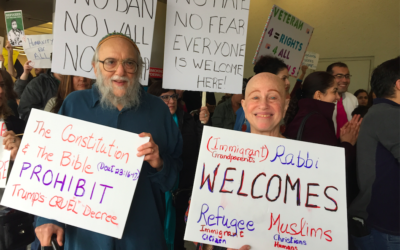 NO BAN
NO WALL
NO
NO HATE
NO FEAR
EVERYONE
IS WELCOME
HERE!
VETERAN
4 = RIGHTS
4 ALL
The Constitution
& the Bible (Deut 23:16-17)
PROHIBIT
Trump's CRUEL Decree
(Immigrant) Rabbi
Grandparents
WELCOMES
Refugee Muslims
Immigrant Christians
Citizen Humans